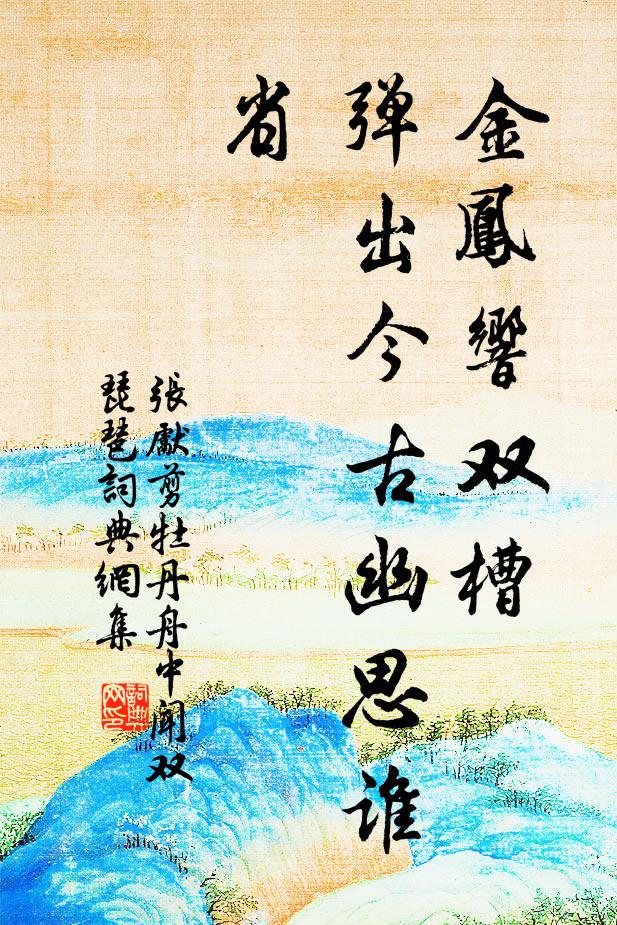 金鳳響双槽
弹出今古幽思谁
省
張獻剪牡丹舟中聞双
琵琶詞典網集
詞典网印